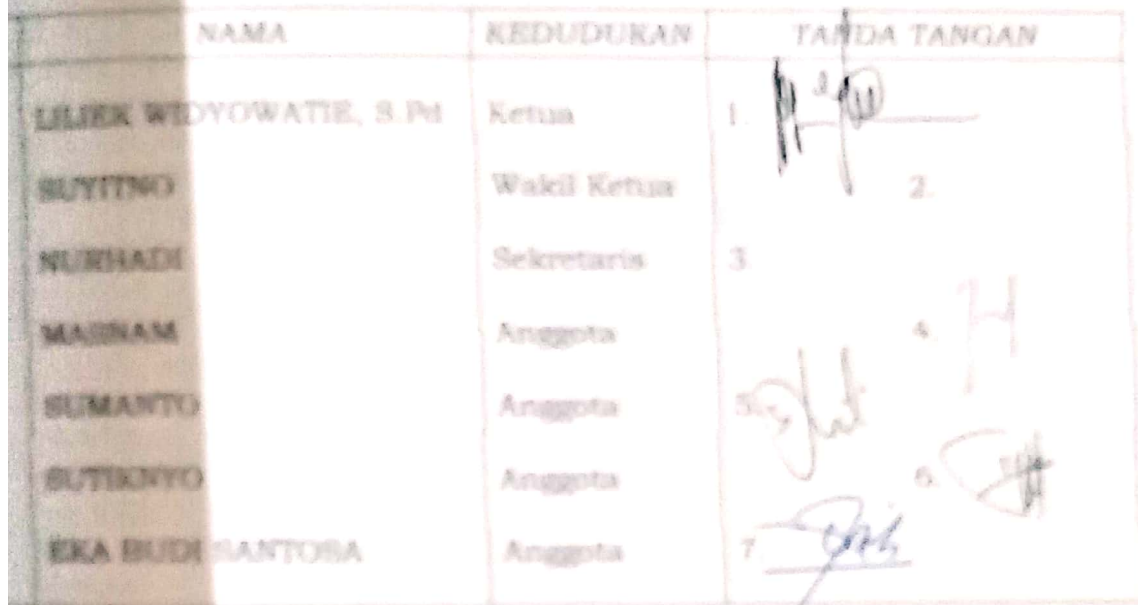 NAMA KEDUDUKAN TANDA TANGAN
LILIEK WIDYOWATIE, S.Pd Ketua 1.
SUYITNO Wakil Ketua 2.
NURHADI Sekretaris 3.
MASNAM Anggota 4.
SUMANTO Anggota 5.
SUTIKNYO Anggota 6.
EKA BUDI SANTOSA Anggota 7.